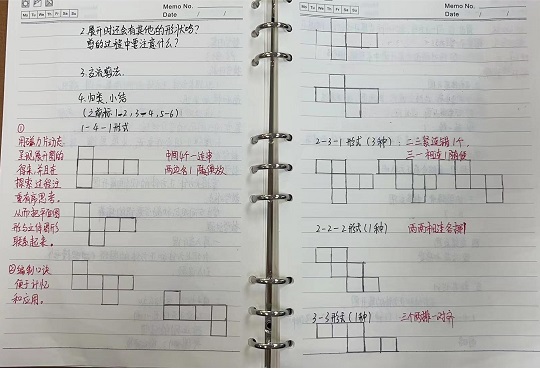 Memo No.
Mo Tu We Th Fr Sa Su
Date / /
2.展开时还会有其他的形状吗?
剪的过程中要注意什么?
3.交流剪法.
4.归类.小结
1-4-1形式
①
用磁力片动态
呈现展开图的
得来,并且在
探索过程注
重有序思考.
从而把平面图
形与立体图形
联系起来.
中间4个一连串
两边各1随便放
②编制口诀
便于记忆
和应用.
Memo No.
Mo Tu We Th Fr Sa Su
Date / /
2-3-1形式(3种):二三紧连错1个,
三一相连1随便
2-2-2形式(1种) 两两相连各错1
3-3形式(1种) 三个两排一对齐